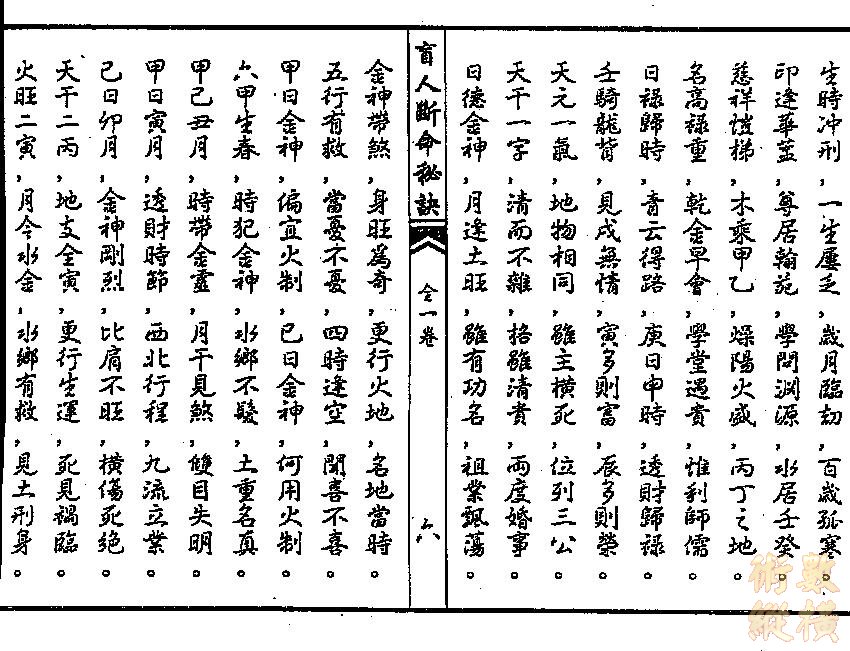 生時冲刑，一生屢乏，歲月臨劫，百歲孤寒。
印逢華蓋，尊居翰苑，學問淵源，水居壬癸。
慈祥愷悌，木乘甲乙，燥陽火盛，丙丁之地。
名高祿重，乾金早會，學堂遇貴，惟利師儒。
日祿歸時，青云得路，庚日申時，透財歸祿。
壬騎龍背，見戌無情，寅多則富，辰多則榮。
天元一氣，地物相同，雖主橫死，位列三公。
天干一字，清而不雜，格雖清貴，兩度婚事。
日德金神，月逢土旺，雖有功名，祖業飄蕩。
盲人斷命秘訣
全一卷
六
金神帶煞，身旺爲奇，更行火地，名地當時。
五行有救，當憂不憂，四時逢空，聞喜不喜。
甲日金神，偏宜火制，己日金神，何用火制。
六甲生春，時犯金神，水鄉不發，土重名真。
甲己丑月，時帶金靈，月干見煞，雙目失明。
甲日寅月，透財時節，西北行程，九流立業。
己日卯月，金神剛烈，比肩不旺，橫傷死絕。
天干二丙，地支全寅，更行生運，死見禍臨。
火旺二寅，月令水金，水鄉有救，見土刑身。
數術縱橫